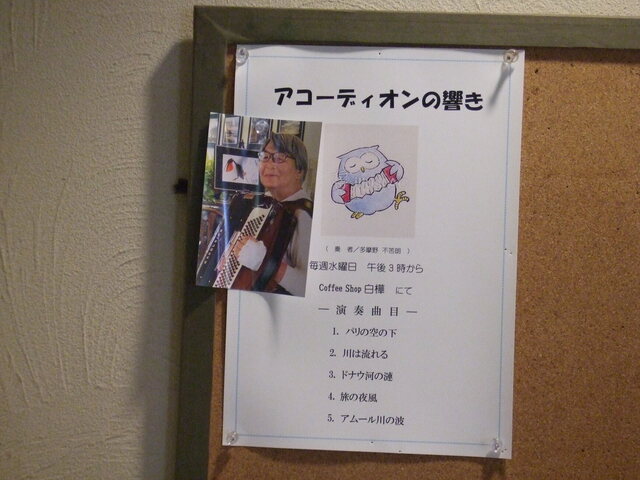 アコーディオンの響き
( 奏 者／多摩野 不苦朗 )
毎週水曜日 午後３時から
Coffee Shop 白樺 にて
― 演 奏 曲 目 ―
1. パリの空の下
2. 川は流れる
3. ドナウ河の漣
4. 旅の夜風
5. アムール川の波